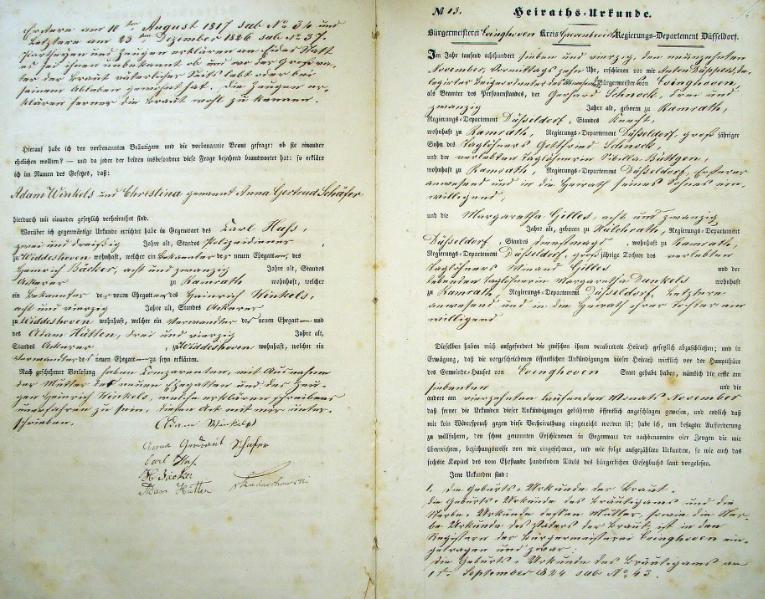 Erstere am 10ten August 1817 sub No 34 und
Letztere am 23ten Dezember 1826 sub No 37.
Parthyen und Zeugen erklären an Eides Statt
es sei ihnen unbekannt ob und wo der Großva-
ter der Braut väterlicher Seits lebt oder bei
seinem Ableben gewohnt hat. Die Zeugen er-
klären ferner die Braut wohl zu kennen.
Hierauf habe ich den vorbenannten Bräutigam und die vorbenannte Braut gefragt: ob sie einander
ehelichen wollen? — und da jeder der beiden insbesondere diese Frage bejahend beantwortet hat: so erkläre
ich im Namen des Gesetzes, daß:
Adam Winkels und Christina genannt Anna Gertrud Schäfer
hierdurch mit einander gesetzlich verheirathet sind.
Worüber ich gegenwärtige Urkunde errichtet habe in Gegenwart des Carl Huss,
zwei und dreißig Jahre alt, Standes Polizeidiener,
zu Widdeshoven wohnhaft, welcher ein Bekannter der neuen Ehegatten, des
Heinrich Bäcker, acht und zwanzig Jahre alt, Standes
Ackerer zu Ramrath wohnhaft, welcher
ein Bekannter der neuen Ehegatten des Heinrich Winkels,
acht und vierzig Jahre alt, Standes Ackerer
zu Widdeshoven wohnhaft, welcher ein Verwandter des neuen Ehegatten und
des Adam Hütten, drei und vierzig Jahre alt,
Standes Ackerer, zu Widdeshoven wohnhaft, welcher ein
Verwandter des neuen Ehegatten zu seyn erklären.
Nach geschehener Vorlesung haben Comparenten, mit Ausnahme
der Mutter des neuen Ehegatten und des Zeu-
gen Heinrich Winkels, welche erklären schreibens
unerfahren zu sein, diesen Act mit mir unter-
schrieben.
Adam Winkels
Anna Gertraut Schäfer
Carl Huss
H Bäcker
Adam Hütten
№ 13. Heiraths-Urkunde.
Bürgermeisterei Evinghoven Kreis Grevenbroich Regierungs-Departement Düsseldorf.
Im Jahr tausend achthundert sieben und vierzig, den neunzehnten
November, Vormittags zehn Uhr, erschienen vor mir Anton
Bürgermeister von Evinghoven,
als Beamten des Personenstandes, der Gerhard Schnock, drei und
zwanzig Jahre alt, geboren zu Ramrath,
Regierungs-Departement Düsseldorf, Standes Knecht,
wohnhaft zu Ramrath, Regierungs-Departement Düsseldorf, großjähriger
Sohn des Taglöhners Gottfried Schnock,
und der verlebten Taglöhnerin Sibilla Büttgen,
wohnhaft zu Ramrath, Regierungs-Departement Düsseldorf, Ersterer
anwesend und in die Heirath seines Sohnes ein-
willigend,
und die Margaretha Gilles, acht und zwanzig
Jahre alt, geboren zu Hülchrath, Regierungs-Departement
Düsseldorf, Standes Dienstmagd, wohnhaft zu Ramrath,
Regierungs-Departement Düsseldorf, großjährige Tochter des verlebten
Taglöhners Gilles und der
lebenden Taglöhnerin Margaretha Dunkels wohnhaft
zu Ramrath, Regierungs-Departement Düsseldorf, Letztere
anwesend und in die Heirath ihrer Tochter ein-
willigend
Dieselben haben mich aufgefordert die zwischen ihnen verabredete Heirath gesetzlich abzuschließen; und in
Erwägung, daß die vorgeschriebenen öffentlichen Ankündigungen dieser Heirath wirklich vor der Hauptthüre
des Gemeinde-Hauses von Evinghoven Statt gehabt haben, nämlich die erste am
siebenten und die
andere am vierzehnten laufenden Monats November
daß ferner die Urkunden dieser Ankündigungen gebührend öffentlich angeschlagen gewesen, und endlich daß
mir kein Widerspruch gegen diese Verheirathung eingereicht worden ist; habe ich, um besagter Aufforderung
zu willfahren, den schon genannten Erschienenen in Gegenwart der nachbenannten vier Zeugen die mir
überreichten, beziehungsweise von mir eingesehenen, und wie folgt aufgezählten Urkunden, so wie auch das
sechste Kapitel des vom Ehestande handelnden Titels des bürgerlichen Gesetzbuchs laut vorgelesen.
Jene Urkunden sind:
1, die Geburts-Urkunde der Braut.
die Geburts-Urkunde des Bräutigams und die
Sterbe-Urkunde dessen Mutter, sowie die Ster-
be-Urkunde des Vaters der Braut, ist in den
Registern der Bürgermeisterei Evinghoven ein-
getragen und zwar:
die Geburts-Urkunde des Bräutigams am
1ten September 1824 sub No 43.